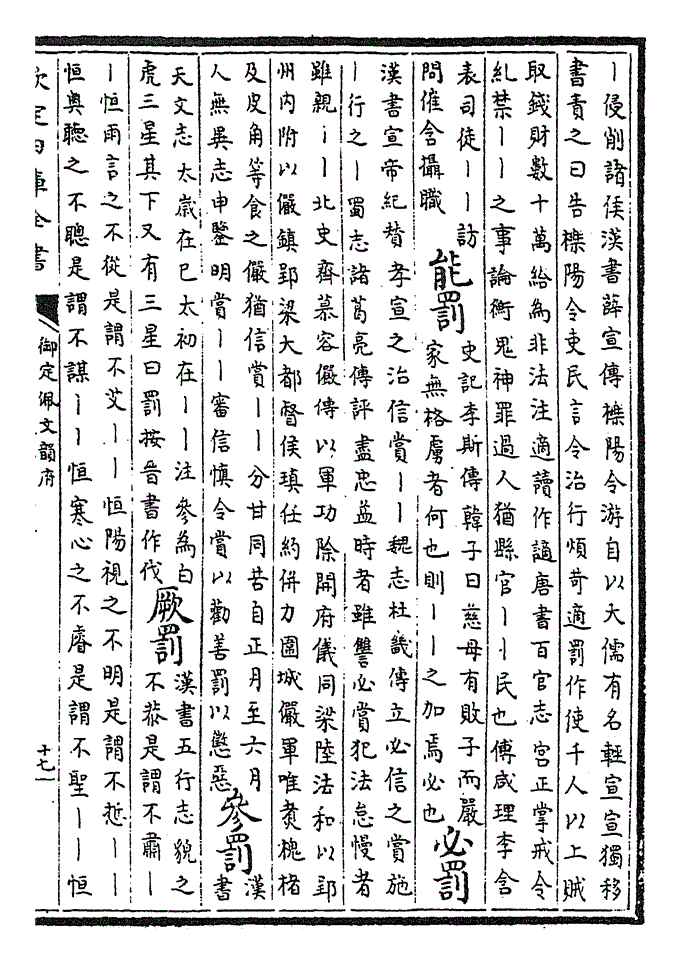 丨侵削諸侯漢書薛宣傳櫟陽令游自以大儒有名輕宣宣獨移
書責之曰告櫟陽令吏民言令治行煩苛適罰作使千人以上賊
取錢財數十萬給為非法注適讀作謫唐書百官志宮正掌戒令
糺禁丨丨之事論衡鬼神罪過人猶縣官丨丨民也傅咸理李含
表司徒丨丨訪
問催含攝職
能罰
史記李斯傳韓子曰慈母有敗子而嚴
家無格虜者何也則丨丨之加焉必也
必罰
漢書宣帝紀贊孝宣之治信賞丨丨魏志杜畿傳立必信之賞施
丨行之丨蜀志諸葛亮傳評盡忠益時者雖讐必賞犯法怠慢者
雖親丨丨北史齊慕容儼傳以軍功除開府儀同梁陸法和以郢
州内附以儼鎮郢梁大都督侯瑱任約併力圍城儼軍唯煑槐楮
及皮角等食之儼猶信賞丨丨分甘同苦自正月至六月
人無異志申鑒明賞丨丨審信慎令賞以勸善罰以懲惡
參罰
漢
書
天文志太嵗在巳太初在丨丨注參為白
虎三星其下又有三星曰罰按晉書作伐
厥罰
漢書五行志貌之
不恭是謂不肅丨
丨恒雨言之不從是謂不艾丨丨恒陽視之不明是謂不悊丨丨
恒奥聽之不聰是謂不謀丨丨恒寒心之不睿是謂不聖丨丨恒
欽定四庫全書
御定佩文韻府
十七